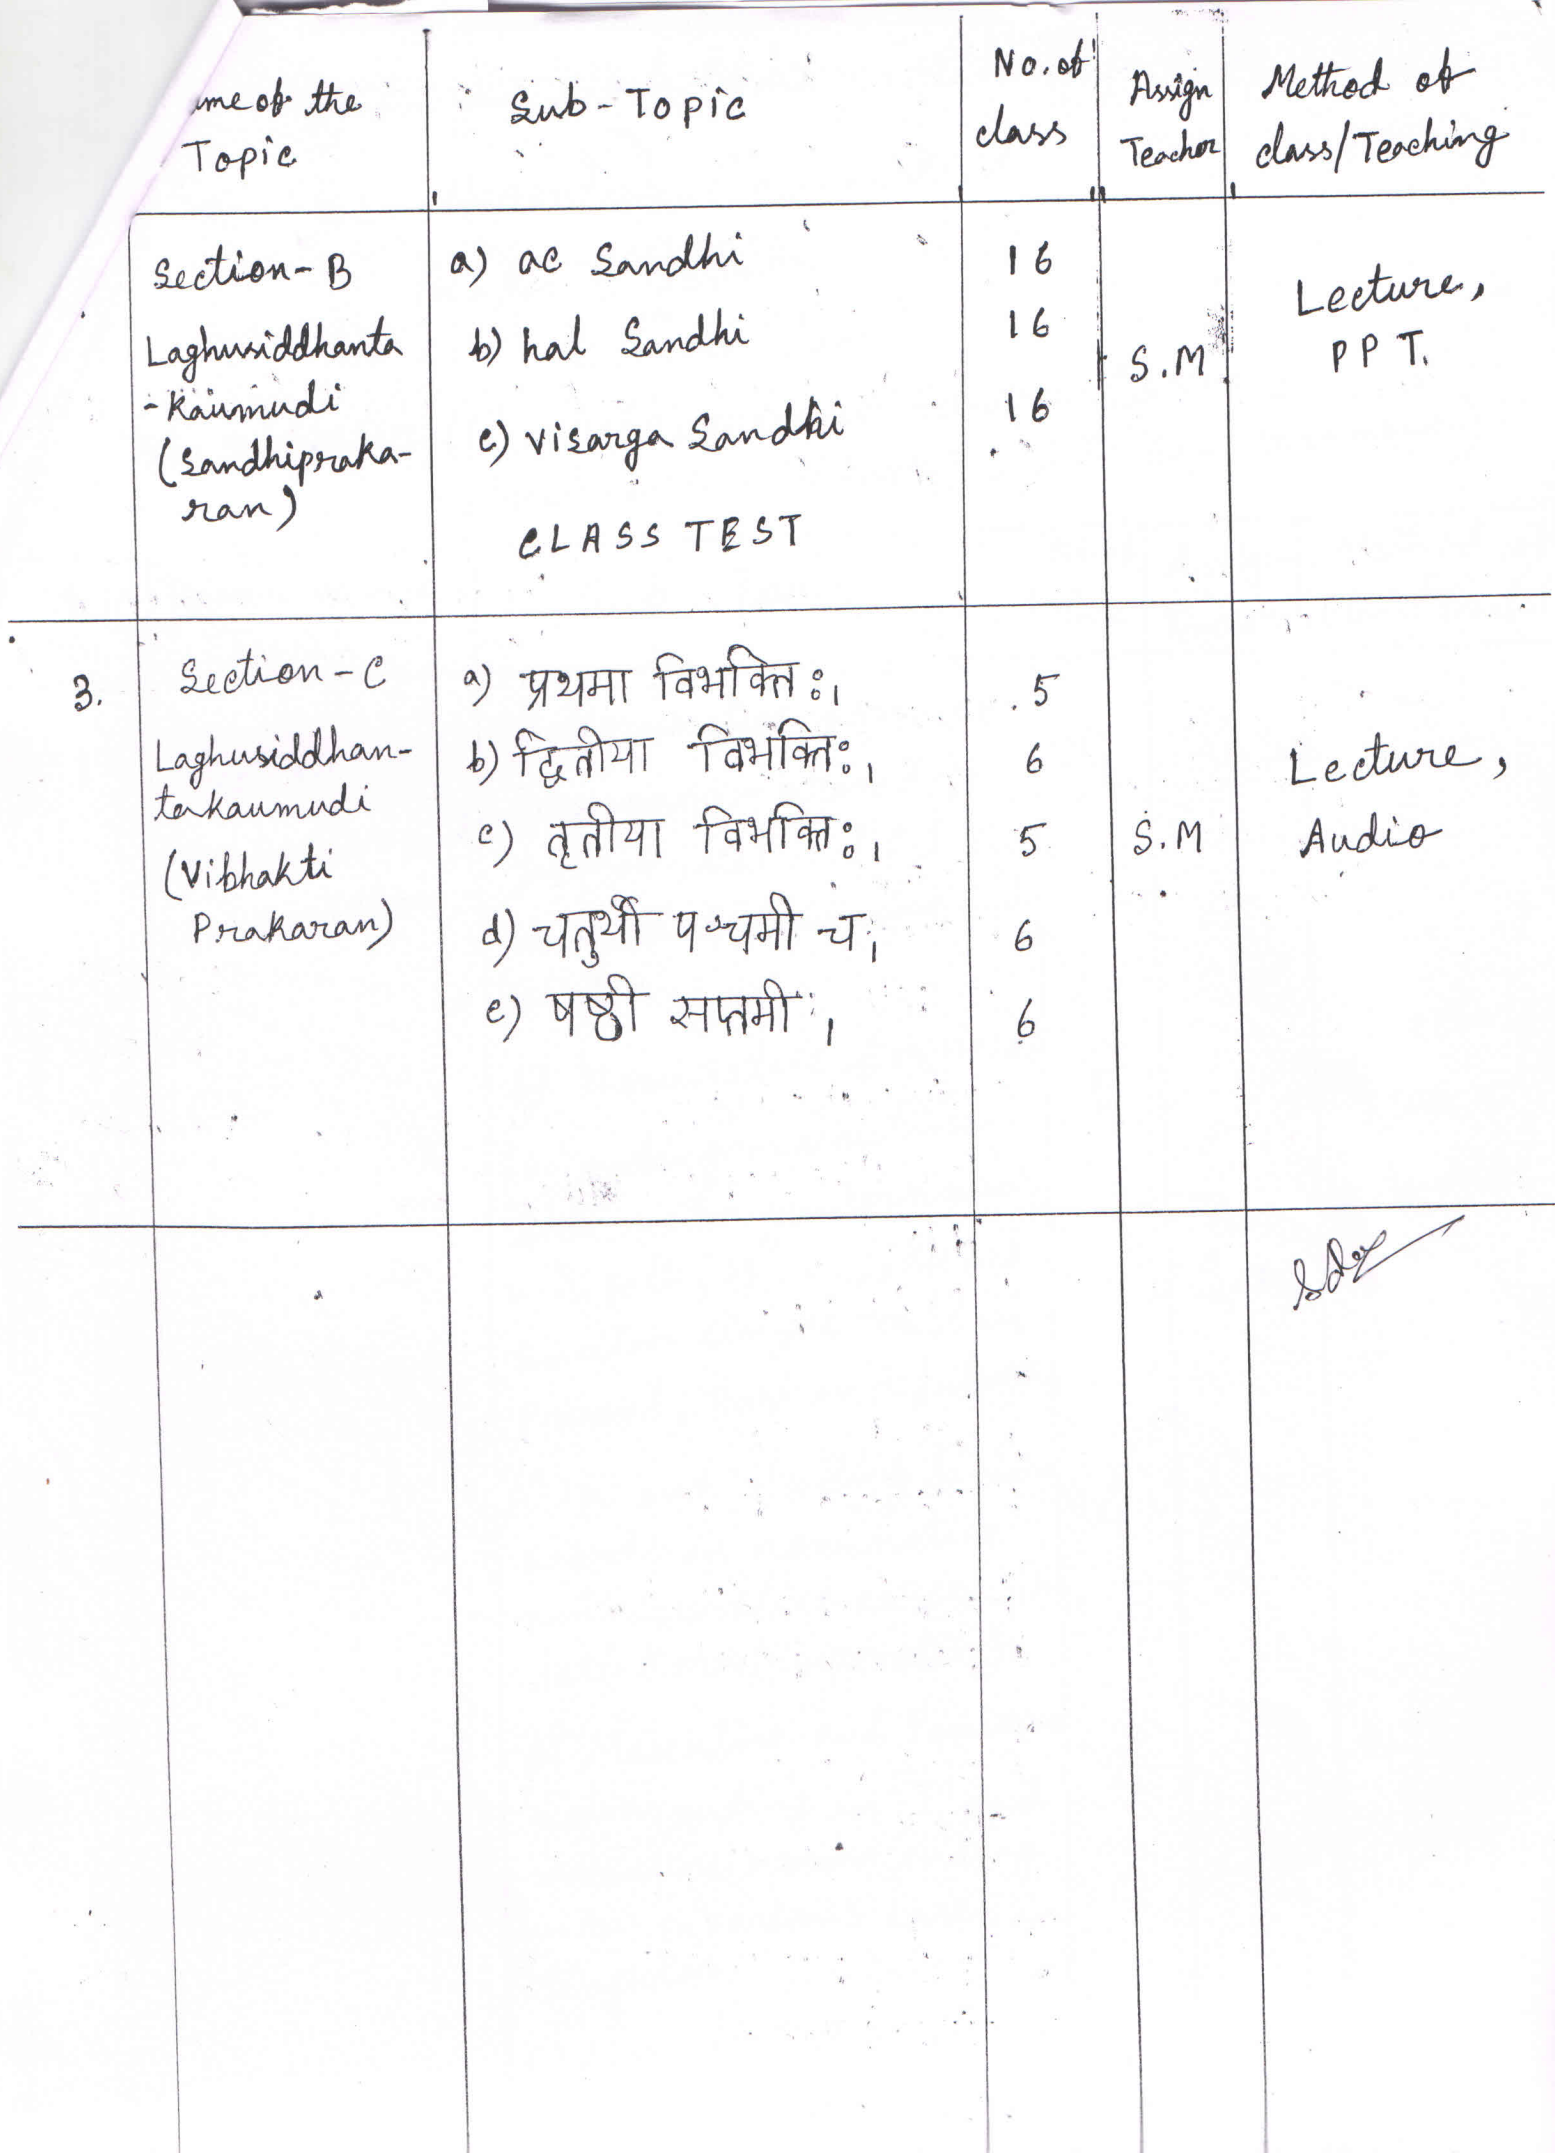 Topic
Sub-Topic
No. of
class
Assign
Teacher
Method of
class/Teaching
Section-B
Laghusiddhanta
-Kaumudi
(Sandhipraka-
ran)
a) ac Sandhi
b) hal Sandhi
c) visarga Sandhi
CLASS TEST
16
16
16
S.M
Lecture,
PPT.
3.
Section-C
Laghusiddhan-
takaumudi
(Vibhakti
Prakaran)
a) प्रथमा विभक्तिः।
b) द्वितीया विभक्तिः।
c) तृतीया विभक्तिः।
d) चतुर्थी पञ्चमी च।
e) षष्ठी सप्तमी।
5
6
5
6
6
S.M
Lecture,
Audio